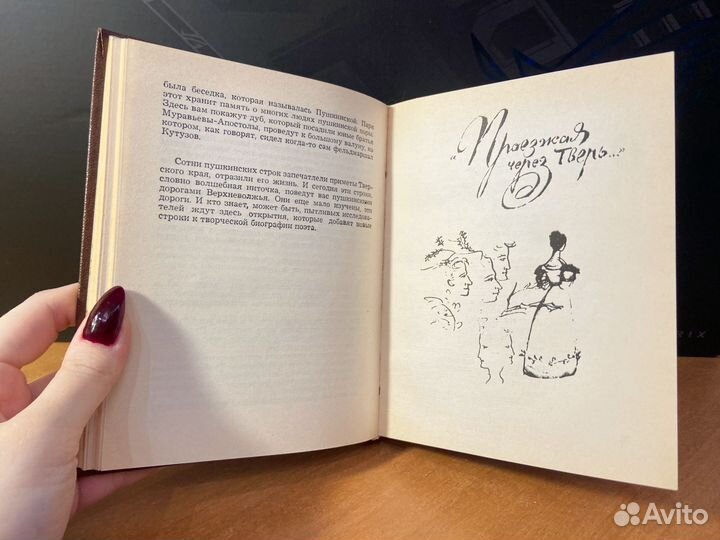 была беседка, которая называлась Пушкинской. Парк
этот хранит память о многих людях пушкинской поры.
Здесь вам покажут дуб, который посадили юные братья
Муравьевы-Апостолы, проведут к большому валуну, на
котором, как говорят, сидел когда-то сам фельдмаршал
Кутузов.
Сотни пушкинских строк запечатлели приметы Твер-
ского края, отразили его жизнь. И сегодня эти строки,
словно волшебная ниточка, поведут вас пушкинскими
дорогами Верхневолжья. Они еще мало изучены, эти
дороги. И кто знает, может быть, пытливых исследова-
телей ждут здесь открытия, которые добавят новые
строки к творческой биографии поэта.
„Проезжая
через Тверь..."
RIX
Avito